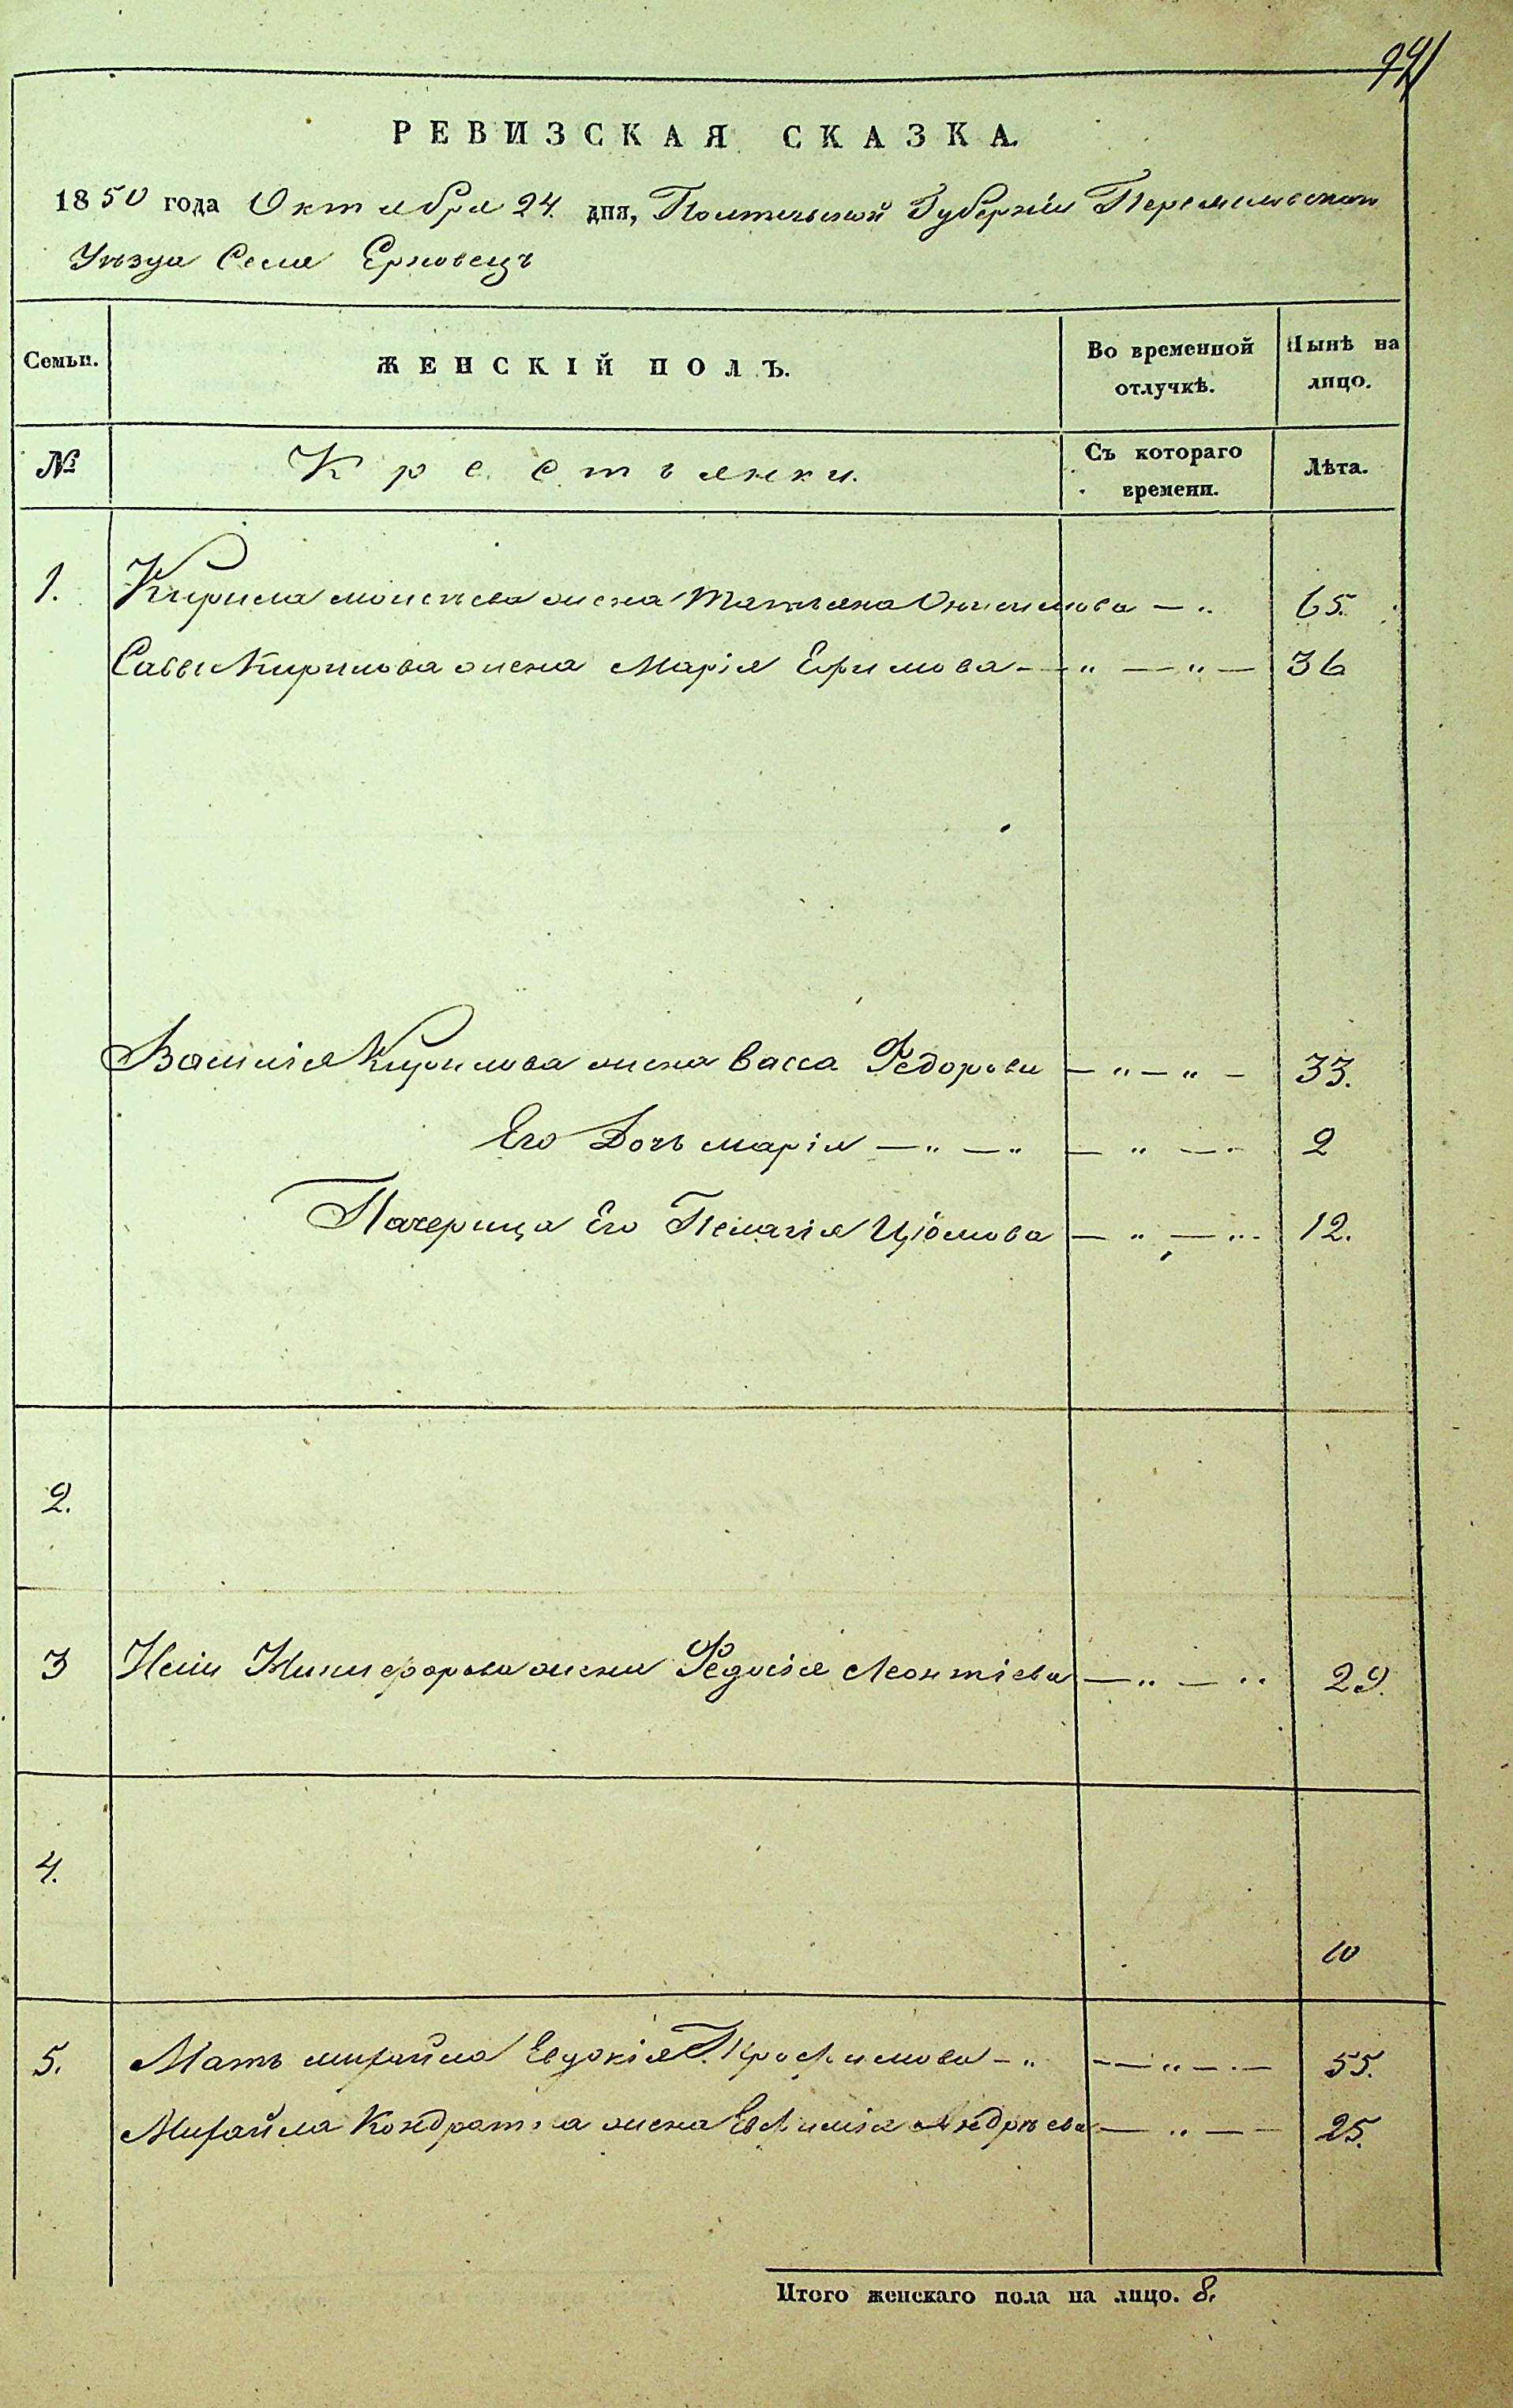 991
РЕВИЗСКАЯ СКАЗКА.
1850 года Октября 24. дня, Полтавской Губерніи Переяславскаго
Уѣзда Села Ерковецъ
Семьи.
ЖЕНСКІЙ ПОЛЪ.
Во временной отлучкѣ.
Нынѣ на лицо.
№
Крестьянки.
Съ котораго времени.
Лѣта.
1. Кирила Моисѣева жена Татьяна Онисимова — „ 65.
Савы Кирилова жена Марія Ефимова — „ — „ — 36
Василія Кирилова жена Васса Федорова — „ — „ — 33.
Его Дочь Марія — „ — „ — „ — „ 2
Пачерица Его Пелагія — „ — „ 12.
2.
3 Никифорова жена Федосія Леонтіева — „ — „ 29.
4.
10
5. Мать Михайла Евдокія Трофимова — „ — — „ — „ — 55.
Михайла Кондратьева жена Евфимія Андрѣева — „ — — 25.
Итого женскаго пола на лицо. 8.